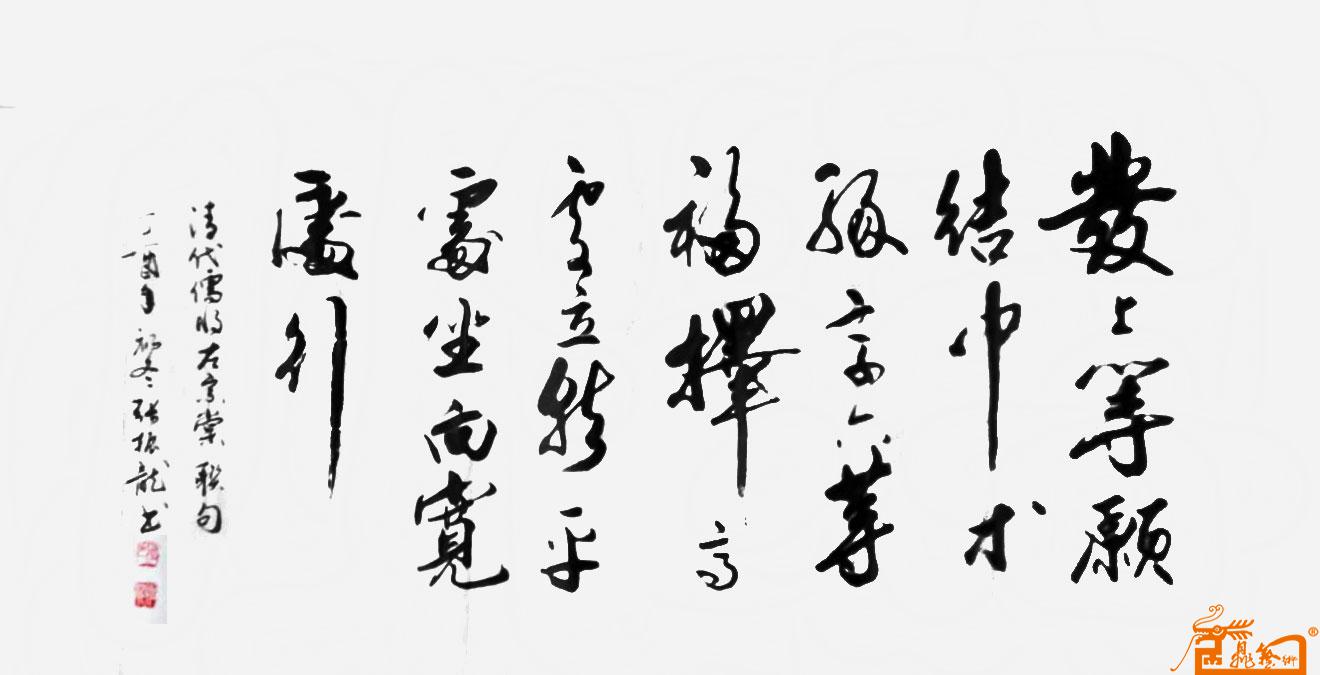 發上等願
結中等
緣享下等
福擇高
處立就平
處坐向寬
處行
清代儒將左宗棠聯句
丁酉年初冬張振龍书